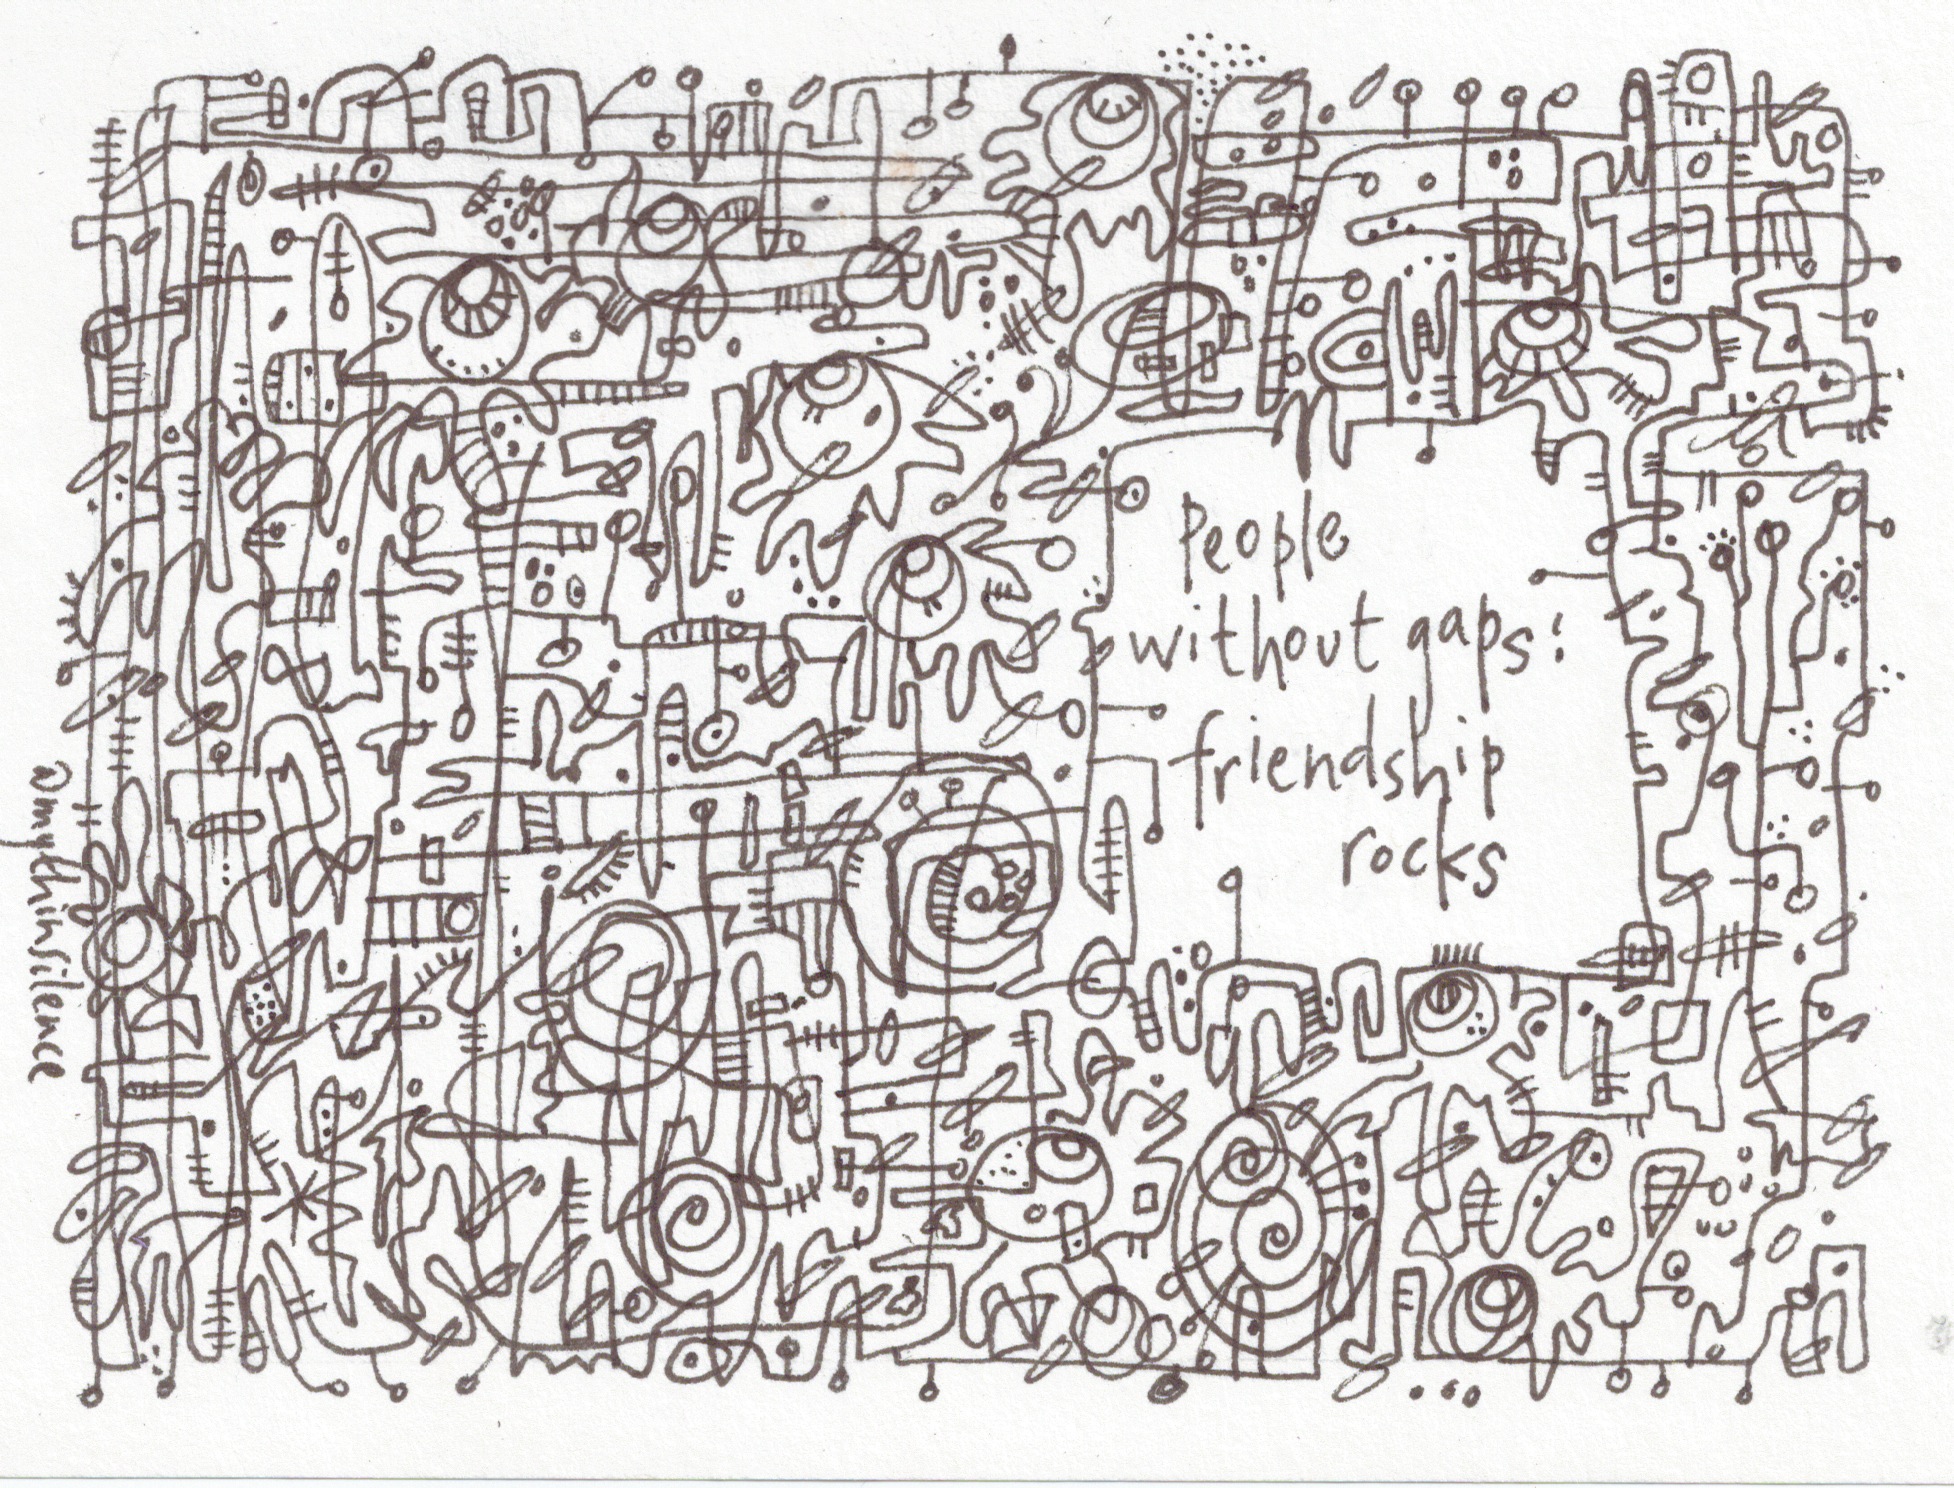 People
without gaps:
friendship
rocks
@mythinsilence